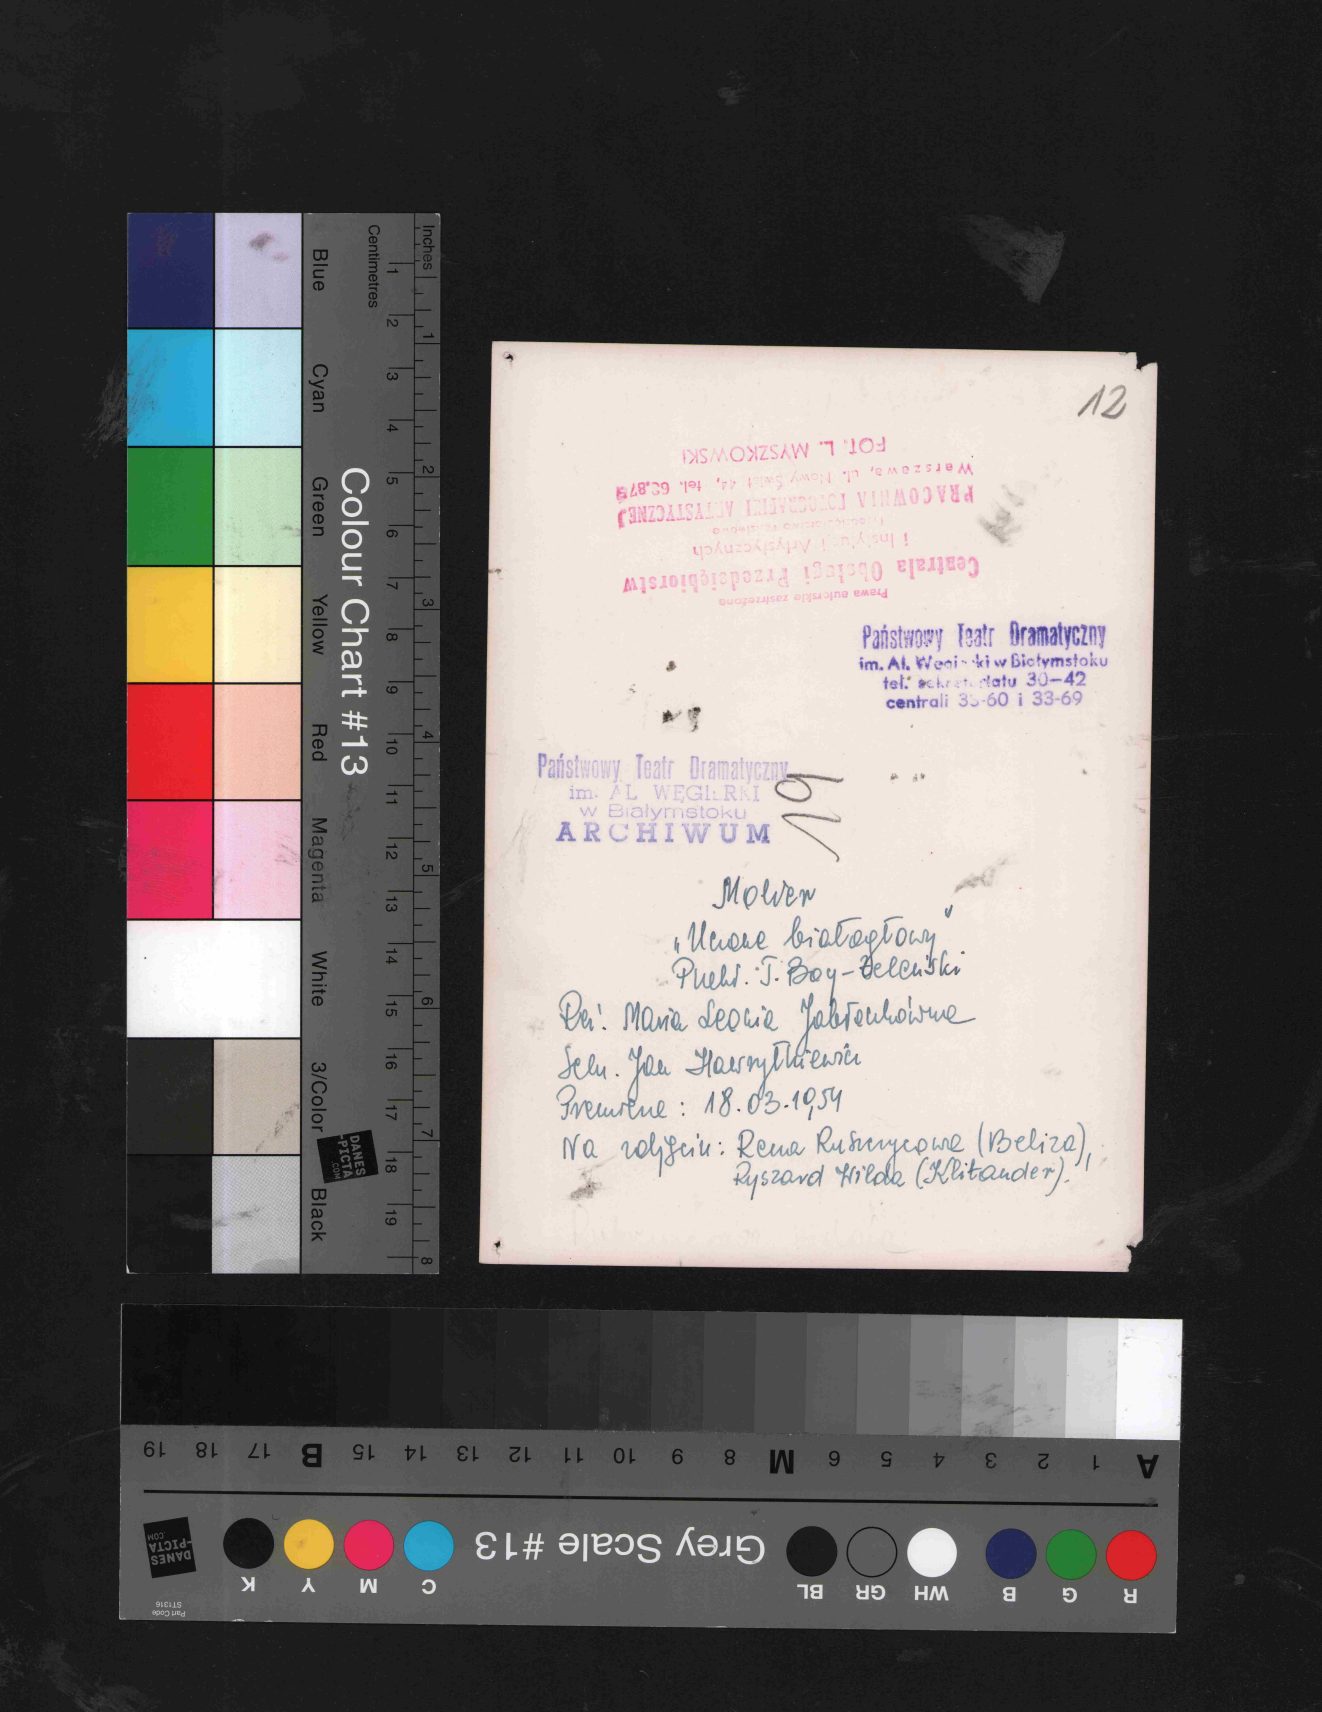 Blue
Cyan
Green
Yellow
Red
Magenta
White
3/Color
Black
Colour Chart #13
Centimetres
Inches
1 2 3 4 5 6 7 8 9 10 11 12 13 14 15 16 17 18 19
1 2 3 4 5 6 7 8
DANES
-PICTA
.COM
12
Prawa autorskie zastrzeżone
Centrala Obsługi Przedsiębiorstw
i Instytucji Artystycznych
PRACOWNIA FOTOGRAFII ARTYSTYCZNEJ
Warszawa, ul. Nowy Świat 44, tel.
FOT. L. MYSZKOWSKI
Państwowy Teatr Dramatyczny
im. Al. Węgierki w Białymstoku
tel. sekretariatu 30-42
centrali 33-60 i 33-69
Państwowy Teatr Dramatyczny
im. AL WĘGIERKI
w Białymstoku
ARCHIWUM
19
Molier
„Uczone białogłowy"
Przekł. T. Boy-Żeleński
Reż. Maria Leonia Jabłonkówna
Scen. Jan Hawryłkiewicz
Premiera: 18.03.1954
Na zdjęciu: Rena Ruszczycowa (Beliza),
Ryszard Hilda (Klitander).
A 1 2 3 4 5 6 M 8 9 10 11 12 13 14 15 B 17 18 19
R G B WH GR BL
Grey Scale #13
C M Y K
DANES
-PICTA
.COM
Part Code
ST1316